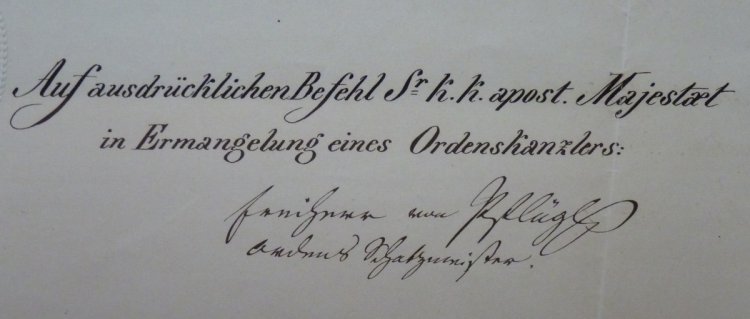 Auf ausdrücklichen Befehl Sr k. k. apost. Majestæt
in Ermangelung eines Ordenskanzlers:
Freiherr von Pflügl
Ordens Schatzmeister.